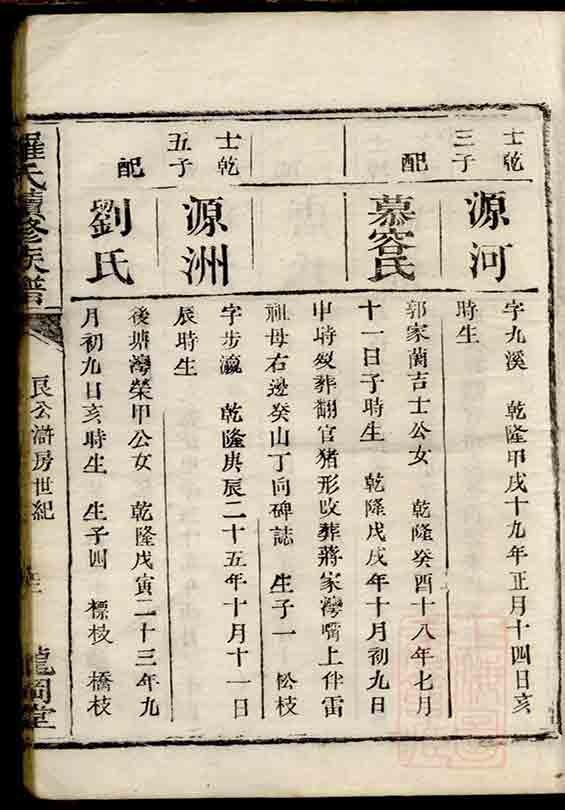 士乾
三子
源河
字九溪 乾隆甲戌十九年正月十四日亥
時生
配
慕容氏
郭家蘭吉士公女 乾隆癸酉十八年七月
十一日子時生 乾隆戊戌年十月初九日
申時歿葬翻官猪形改葬蔣家灣嘴上伴雷
祖母右邊癸山丁向碑誌 生子一 松枝
士乾
五子
源洲
字步瀛 乾隆庚辰二十五年十月十一日
辰時生
配
劉氏
後塘灣榮甲公女 乾隆戊寅二十三年九
月初九日亥時生 生子四 標枝 橋枝
羅氏續修族譜
良公滸房世紀
龍岡堂